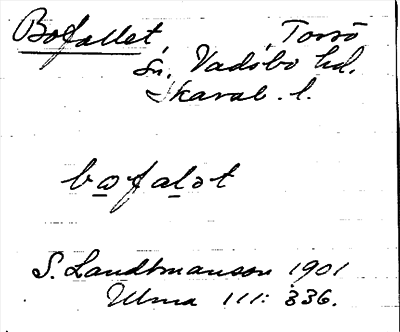 Bofallet, Torsö
Sn. Vadsbo hd.
Skarab. l.
bofalet
S. Landtmanson 1901
Ulma 111: 336.